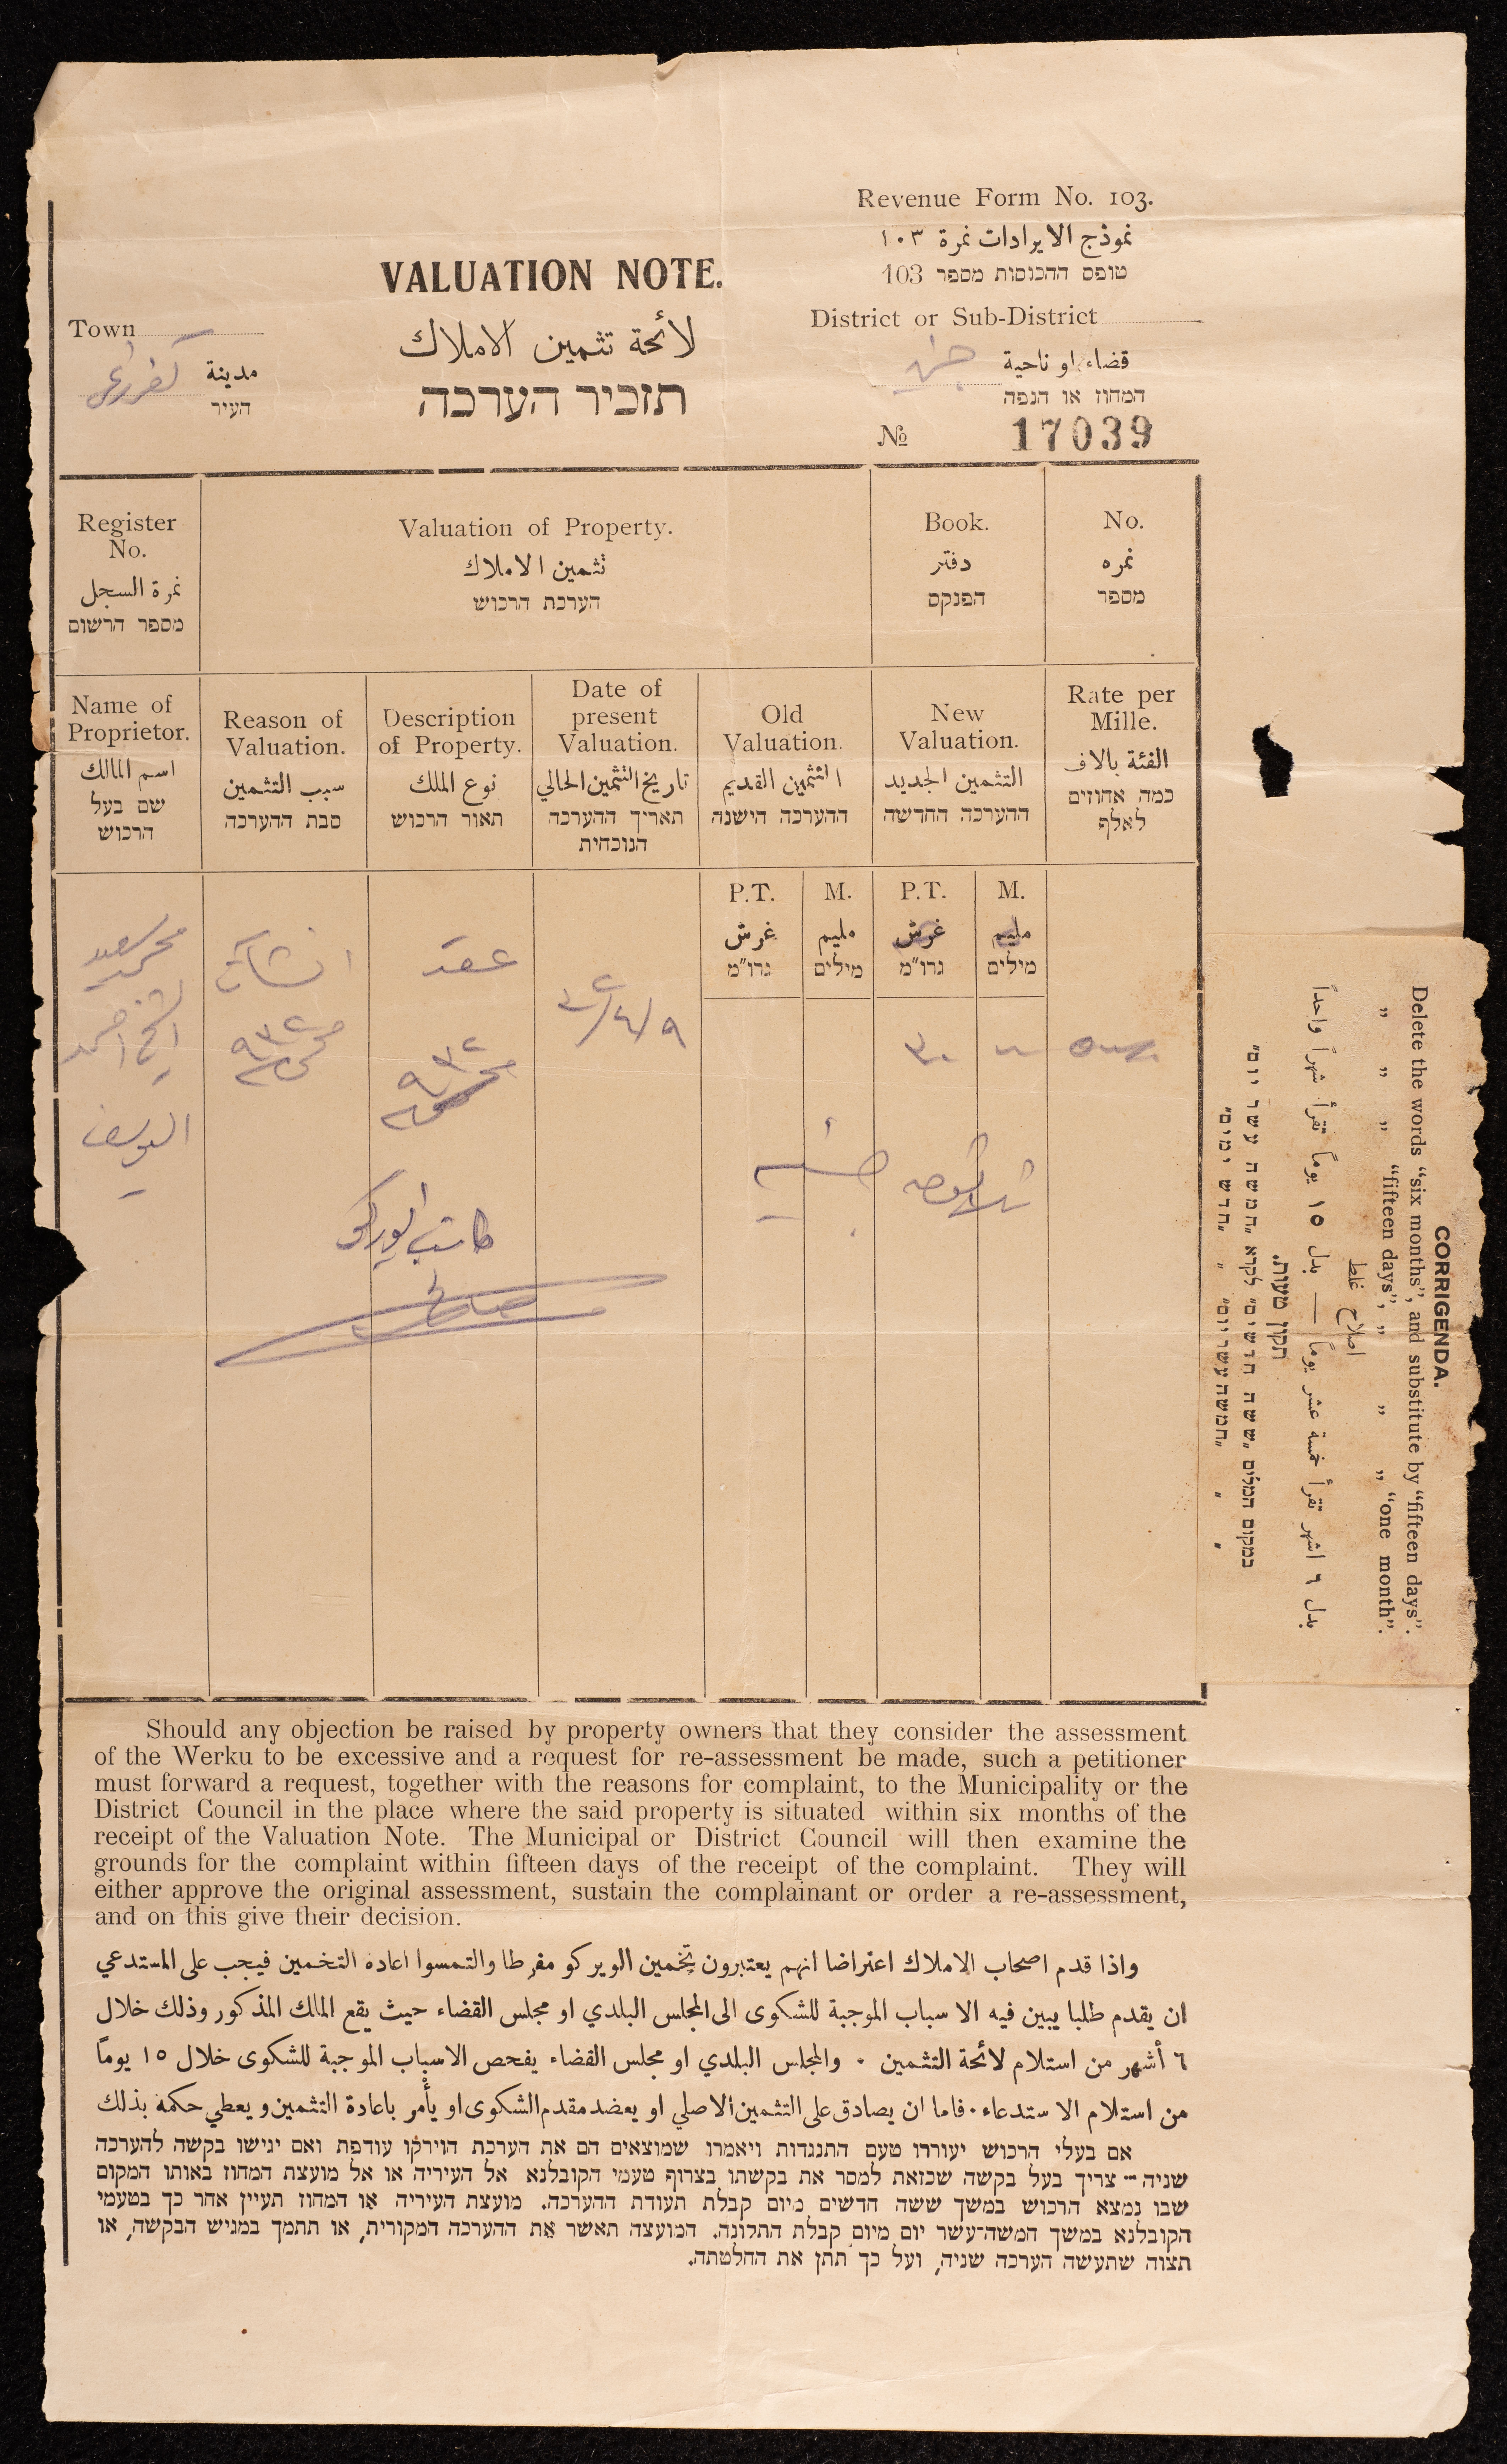 Revenue Form No. 103.
نموذج الايرادات نمرة ١٠٣
טופס ההכנסות מספר 103
VALUATION NOTE.
لائحة تثمين الاملاك
תזכיר הערכה
Town
مدينة كفرراعي
העיר
District or Sub-District
قضاء او ناحية جنين
המחוז או הנפה
No 17039
Register No.
نمرة السجل
מספר הרשום
Valuation of Property.
تثمين الاملاك
הערכת הרכוש
Book.
دفتر
הפנקס
No.
نمره
מספר
Name of Proprietor.
اسم المالك
שם בעל
הרכוש
Reason of Valuation.
سبب التثمين
סבת ההערכה
Description of Property.
نوع الملك
תאור הרכוש
Date of present Valuation.
تاريخ التثمين الحالي
תאריך ההערכה
הנוכחית
Old Valuation.
التثمين القديم
ההערכה הישנה
New Valuation.
التثمين الجديد
ההערכה החדשה
Rate per Mille.
الفئة بالاف
כמה אחוזים
לאלף
P.T. M. P.T. M.
غرش مليم غرش مليم
גרו"מ מילים גרו"מ מילים
محمد سعيد
الشيخ احمد
اليوسف
انشاء
٩٣٢
عقد
٩٣٢
٣٢/٤/٩
٣٠
جنيه
كاتب الويركو
CORRIGENDA.
Delete the words "six months", and substitute by "fifteen days".
" " " "fifteen days", " " " "one month".
اصلاح غلط
بدل ٦ اشهر تقرأ خمسة عشر يوماً — بدل ١٥ يوماً تقرأ شهراً واحداً
תקון טעות.
במקום המלים "ששה חדשים" לקרא "חמשה עשר יום"
" " "חמשה עשר יום" " "חדש ימים"
Should any objection be raised by property owners that they consider the assessment
of the Werku to be excessive and a request for re-assessment be made, such a petitioner
must forward a request, together with the reasons for complaint, to the Municipality or the
District Council in the place where the said property is situated within six months of the
receipt of the Valuation Note. The Municipal or District Council will then examine the
grounds for the complaint within fifteen days of the receipt of the complaint. They will
either approve the original assessment, sustain the complainant or order a re-assessment,
and on this give their decision.
واذا قدم اصحاب الاملاك اعتراضا انهم يعتبرون تخمين الويركو مفرطا والتمسوا اعادة التخمين فيجب على المستدعي
ان يقدم طلبا يبين فيه الاسباب الموجبة للشكوى الى المجلس البلدي او مجلس القضاء حيث يقع المالك المذكور وذلك خلال
٦ أشهر من استلام لائحة التثمين ٠ والمجلس البلدي او مجلس القضاء يفحص الاسباب الموجبة للشكوى خلال ١٥ يوماً
من استلام الاستدعاء ٠ فاما ان يصادق على التثمين الاصلي او يعضد مقدم الشكوى او يأمر باعادة التثمين ويعطي حكمه بذلك
אם בעלי הרכוש יעוררו טעם התנגדות ויאמרו שמוצאים הם את הערכת הוירקו עודפת ואם יגישו בקשה להערכה
שניה — צריך בעל בקשה שכזאת למסר את בקשתו בצרוף טעמי הקובלנא אל העיריה או אל מועצת המחוז באותו המקום
שבו נמצא הרכוש במשך ששה חדשים מיום קבלת תעודת ההערכה. מועצת העיריה או המחוז תעיין אחר כך בטעמי
הקובלנא במשך חמשה־עשר יום מיום קבלת התלונה. המועצה תאשר את ההערכה המקורית, או תתמך במגיש הבקשה, או
תצוה שתעשה הערכה שניה, ועל כך תתן את החלטתה.